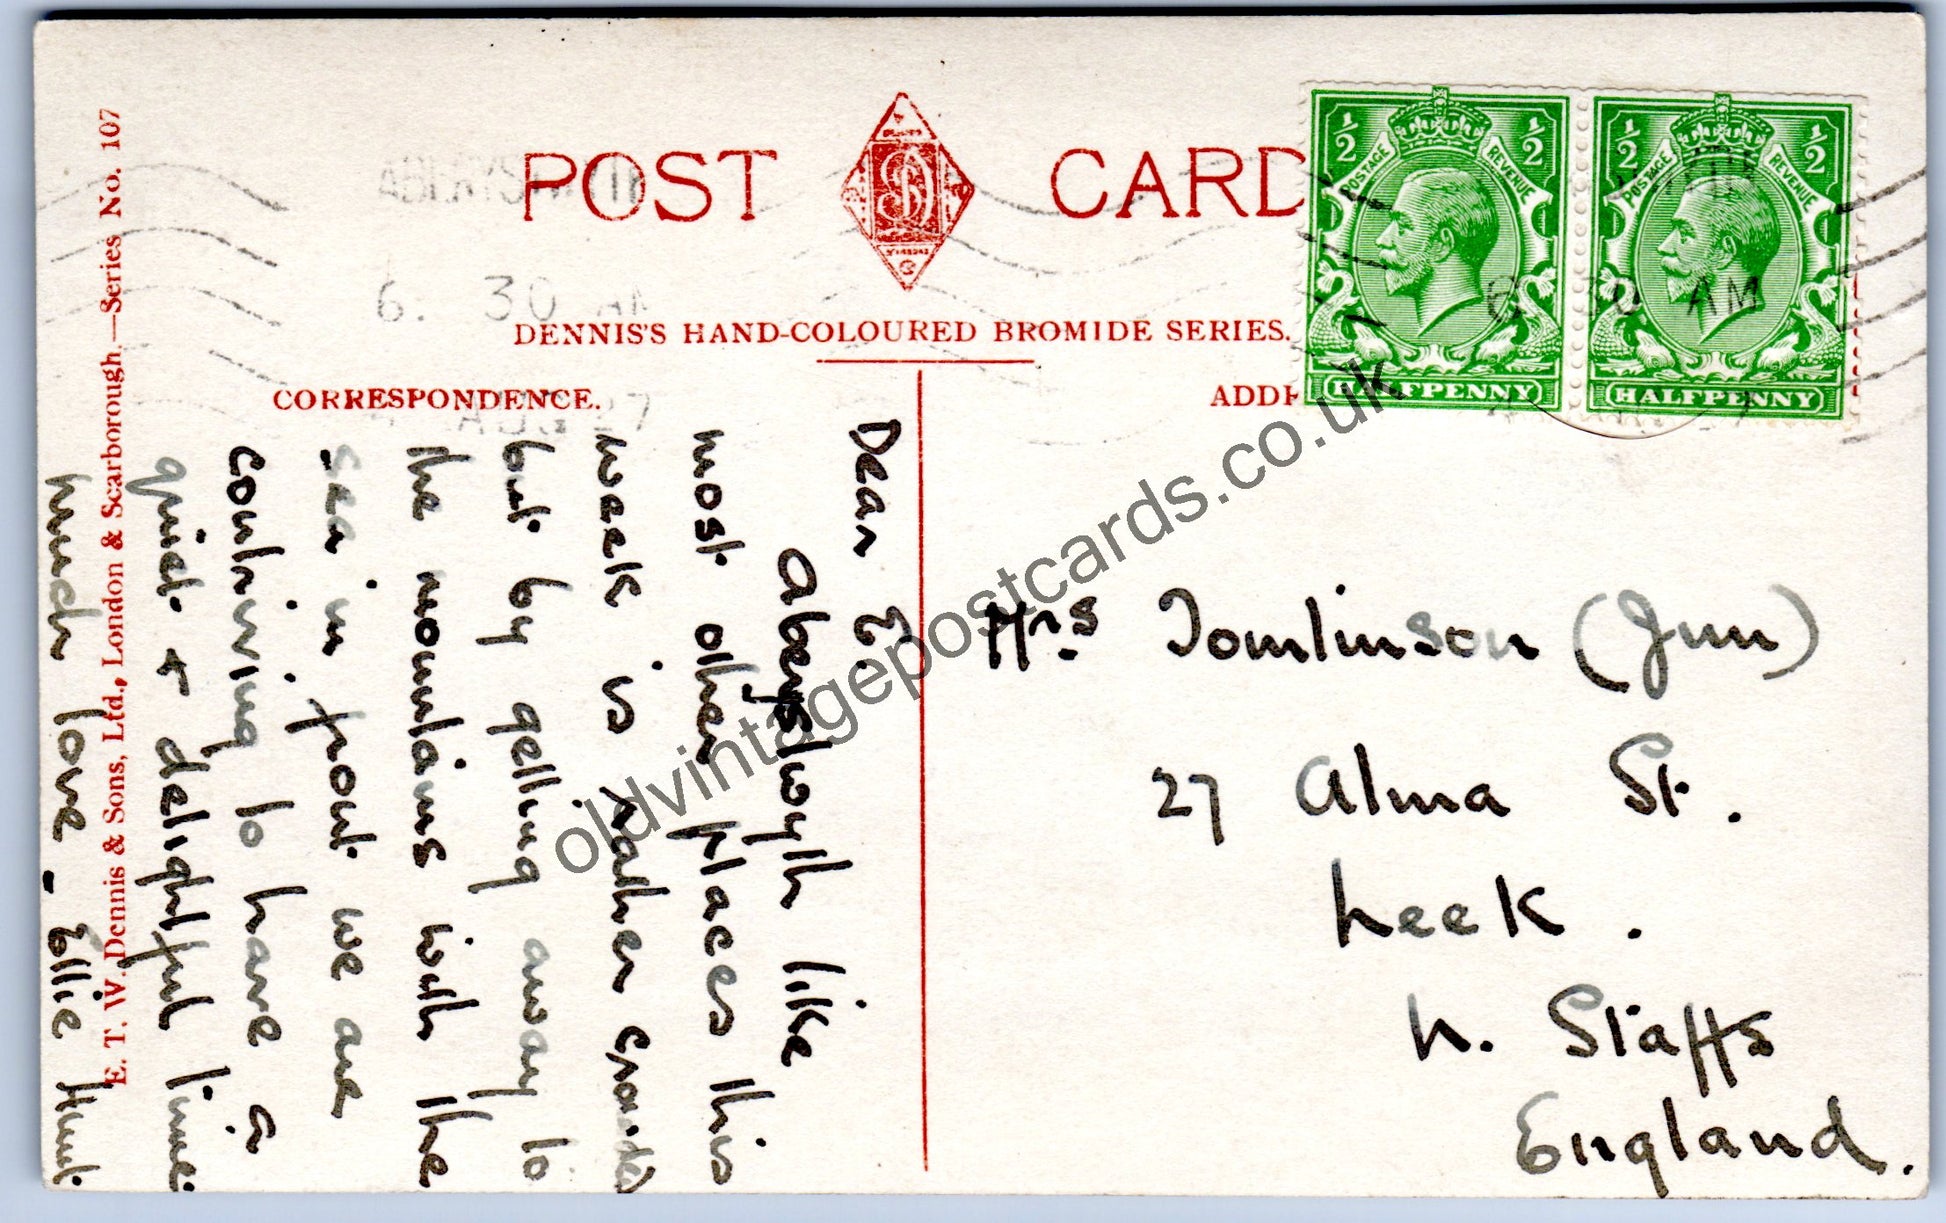 POST CARD
DENNIS'S HAND-COLOURED BROMIDE SERIES.
CORRESPONDENCE.
ADDR
ABERYSTWYTH
6. 30 AM
AUG 27
½ ½
POSTAGE REVENUE
HALFPENNY
½ ½
POSTAGE REVENUE
HALFPENNY
6 30 AM
Dear E.
Aberystwyth like
most other places this
week is rather crowded
but by getting away to
the mountains with the
sea in front we are
contriving to have a
quiet + delightful time.
Much love - Ellie Hunt
Mrs. Tomlinson (Jun)
27 Alma St.
Leek.
N. Staffs
England.
E. T. W. Dennis & Sons, Ltd., London & Scarborough.—Series No. 107
oldvintagepostcards.co.uk